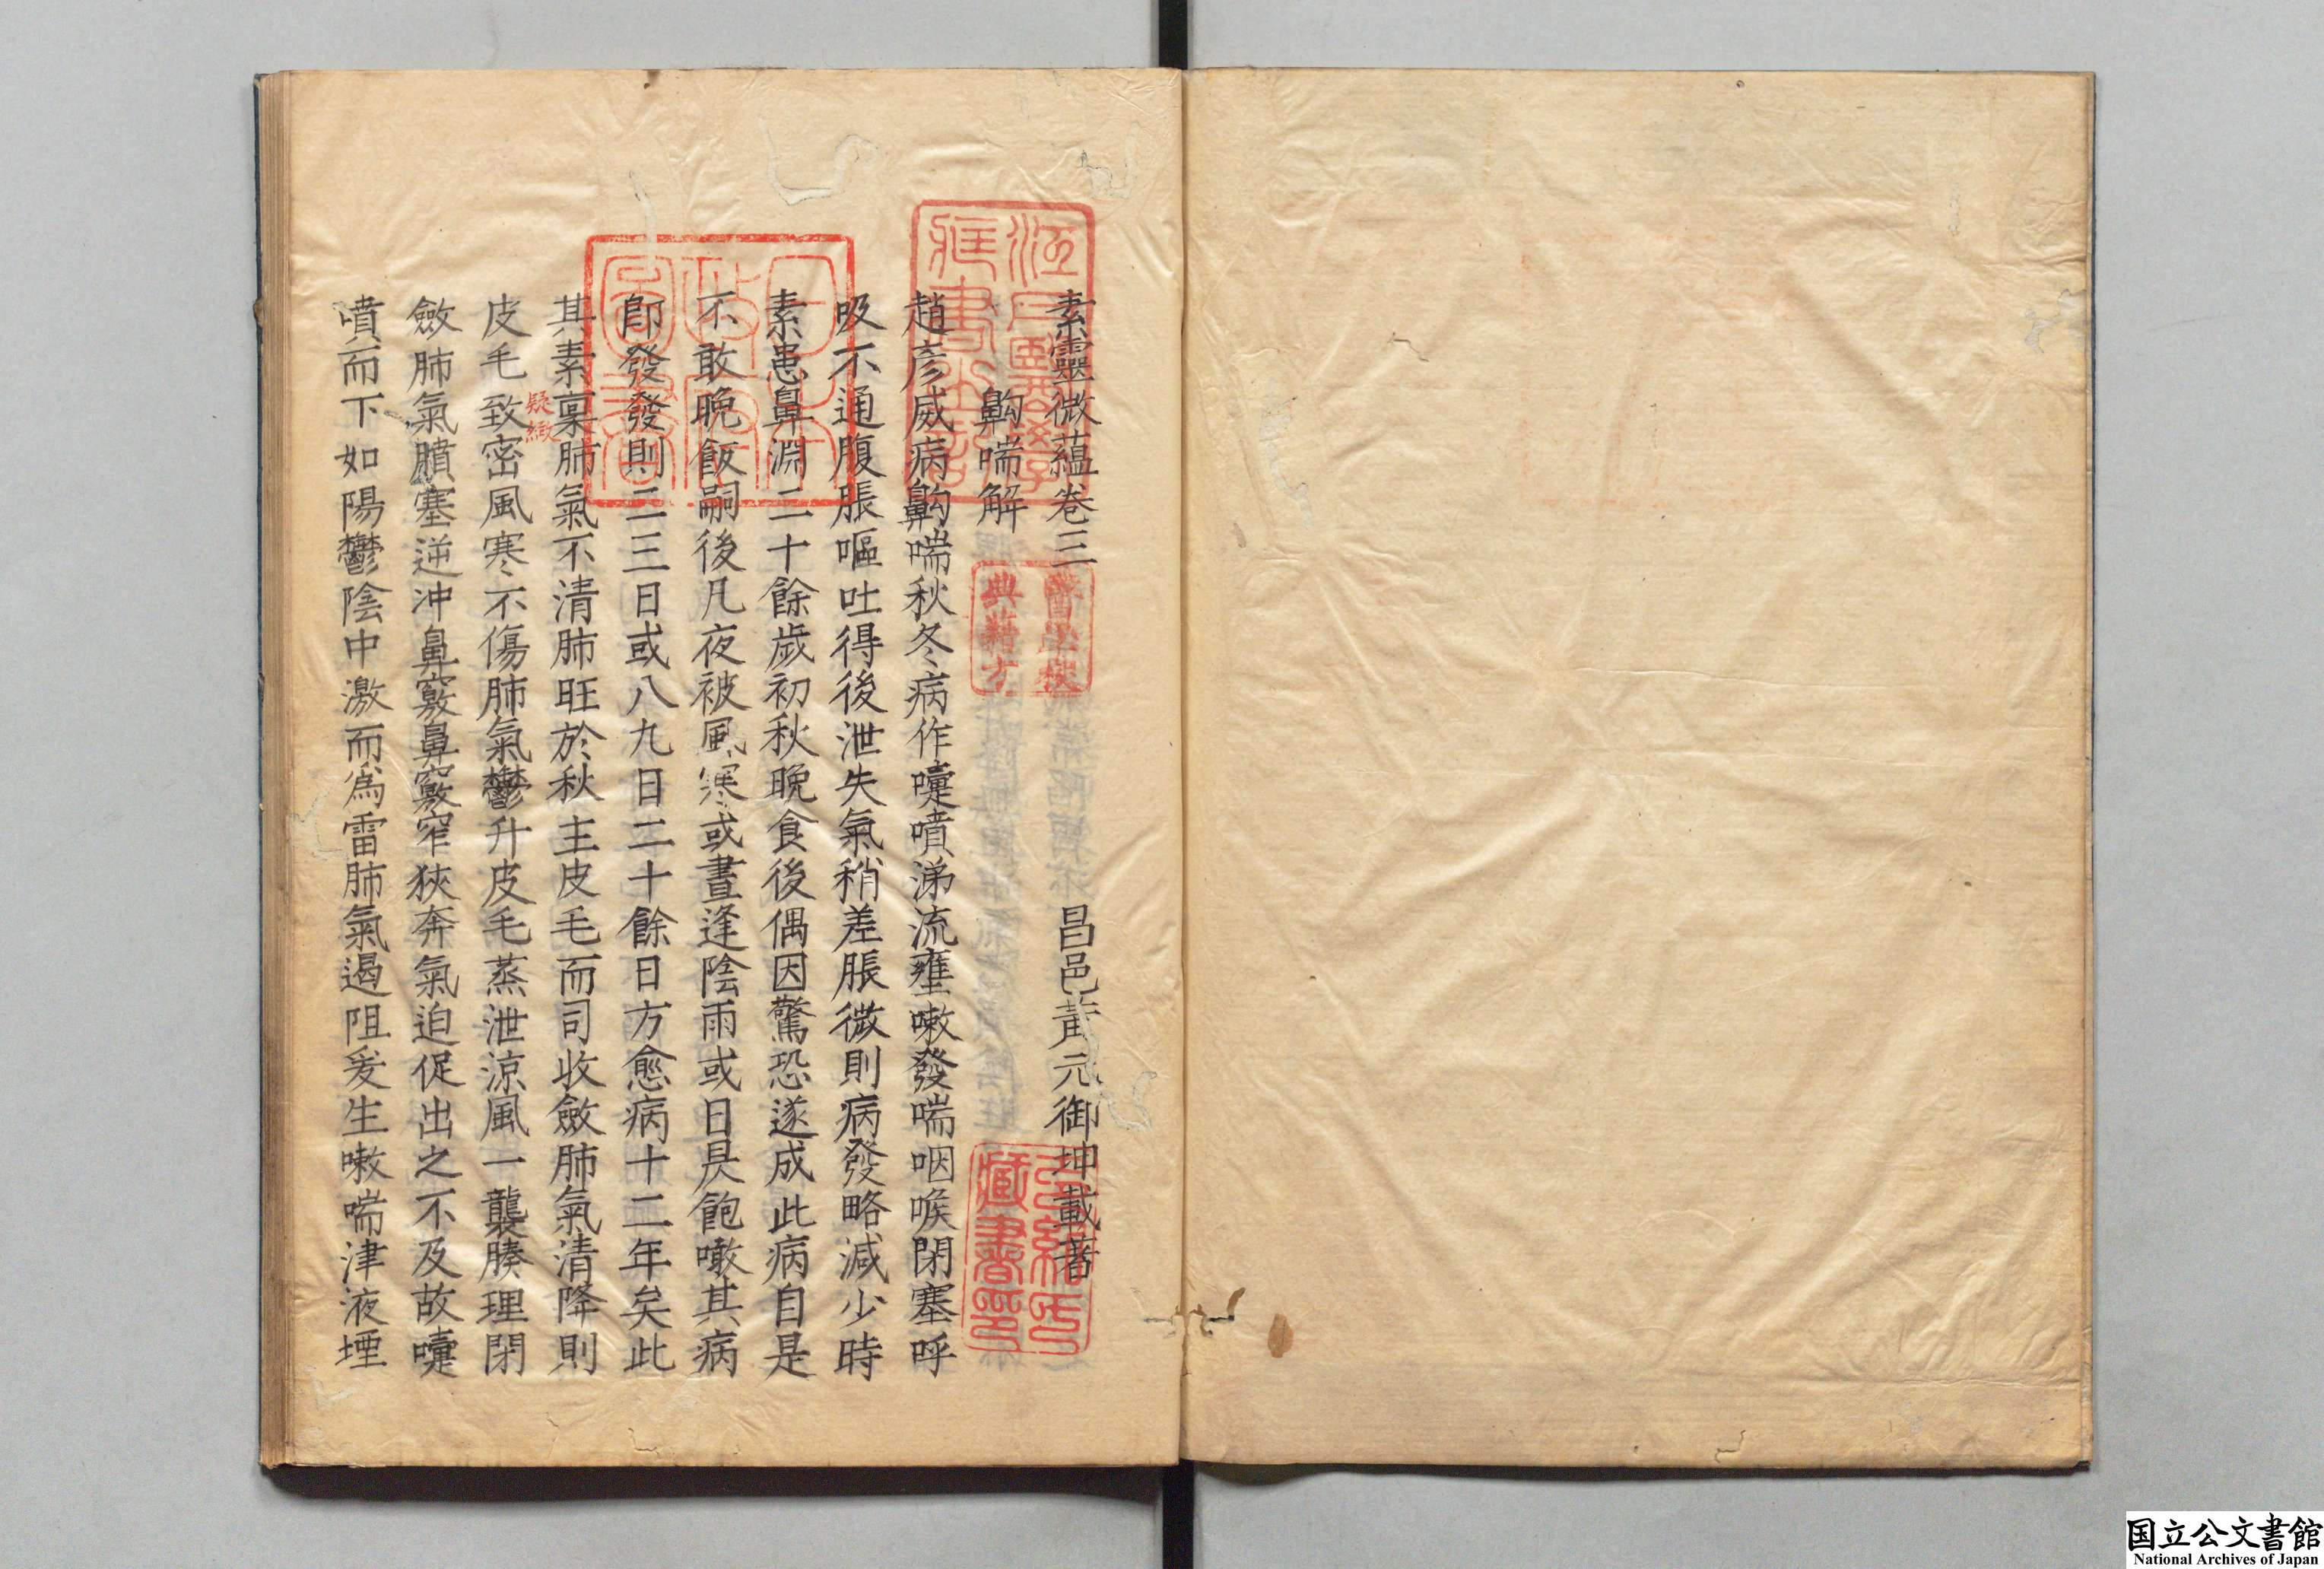 素靈微蘊卷三
昌邑黃元御坤載著
齁喘解
趙彥威病齁喘秋冬病作嚏噴涕流壅嗽發喘咽喉閉塞呼
吸不通腹脹嘔吐得後泄失氣稍差脹微則病發略減少時
素患鼻淵二十餘歲初秋晚食後偶因驚恐遂成此病自是
不敢晚飯嗣後凡夜被風寒或晝逢陰雨或日昃飽噉其病
卽發發則二三日或八九日二十餘日方愈病十二年矣此
其素稟肺氣不清肺旺於秋主皮毛而司收斂肺氣清降則
皮毛致密風寒不傷肺氣鬱升皮毛蒸泄涼風一襲腠理閉
疑緻
斂肺氣膹塞逆冲鼻竅鼻竅窄狹奔氣迫促出之不及故嚏
噴而下如陽鬱陰中激而為雷肺氣遏阻爰生嗽喘津液堙
江戶醫學藏書之記
醫學校典籍方
多紀氏藏書印
日本政府圖書
国立公文書館
National Archives of Japan